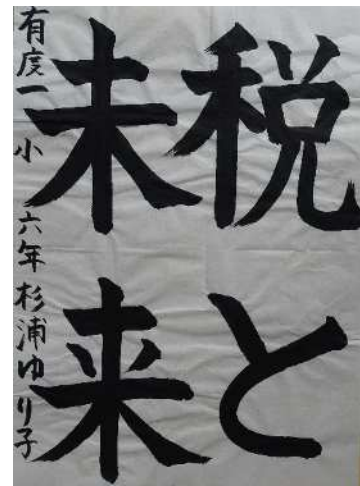 税と
未来
有度一小 六年 杉浦ゆり子